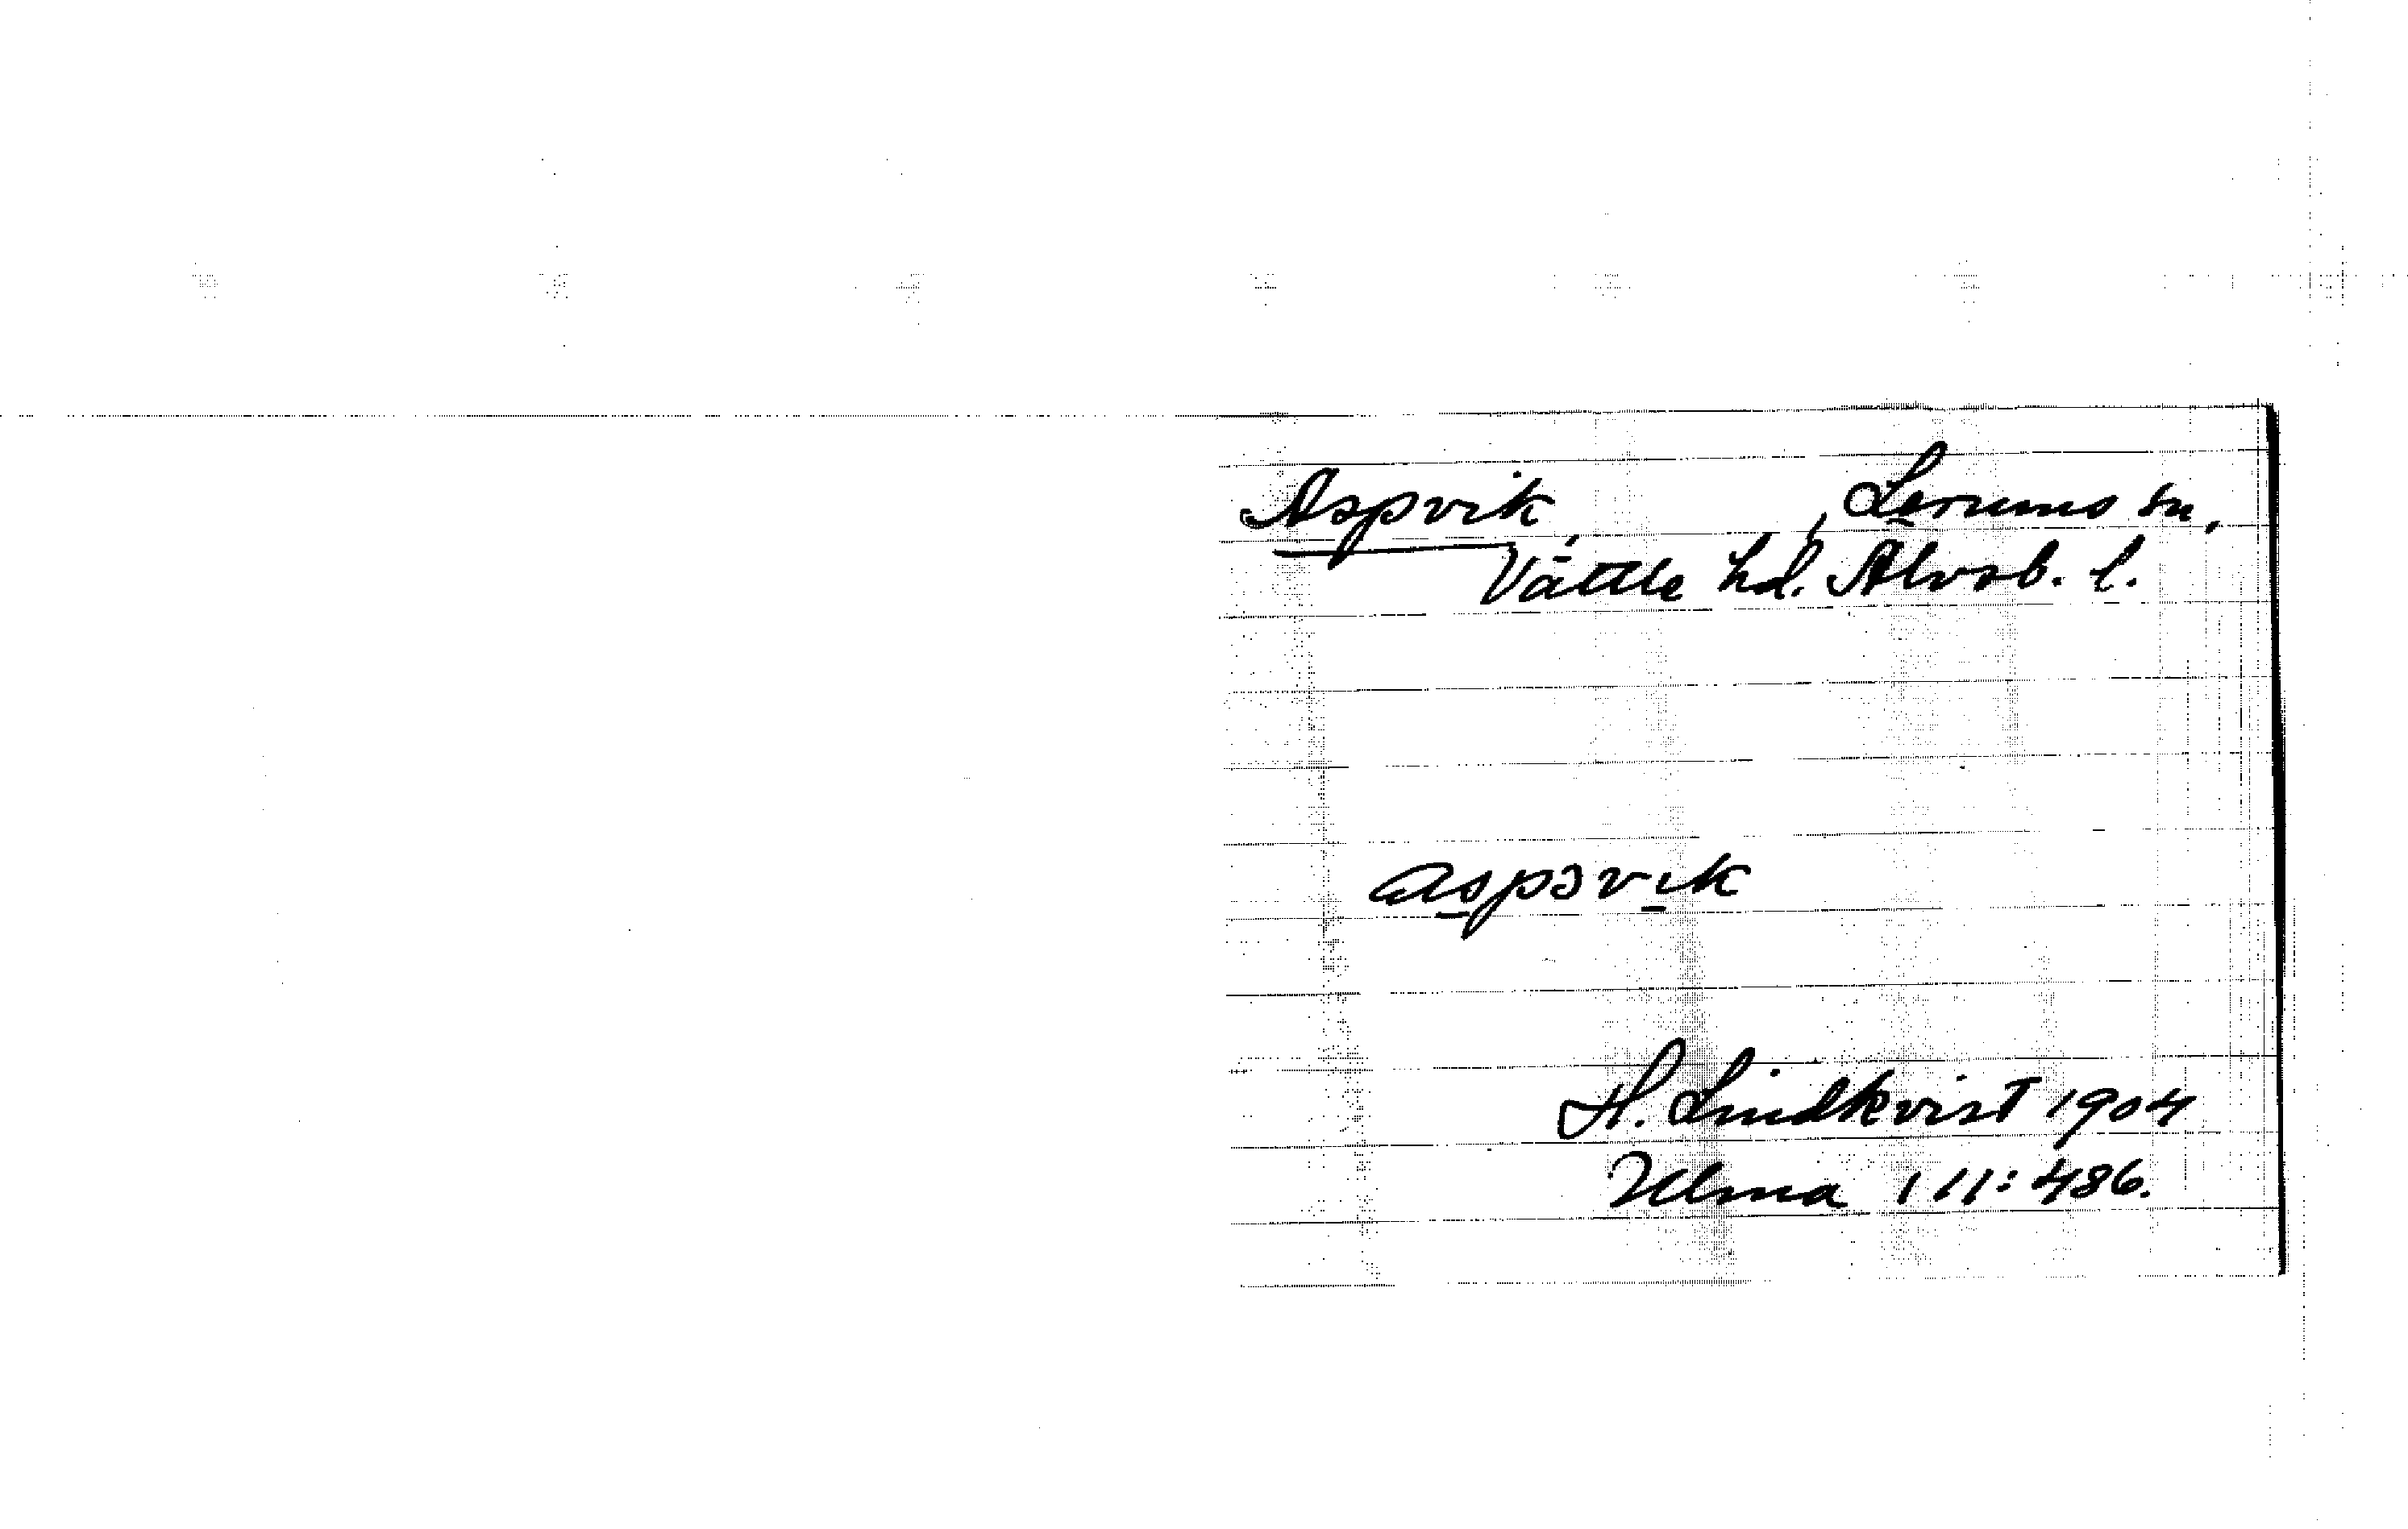 Aspvik, Lerums sn,
Vättle hd. Älvsb. l.
aspɔvik
H. Lindkvist 1904
Ulma 111:486.